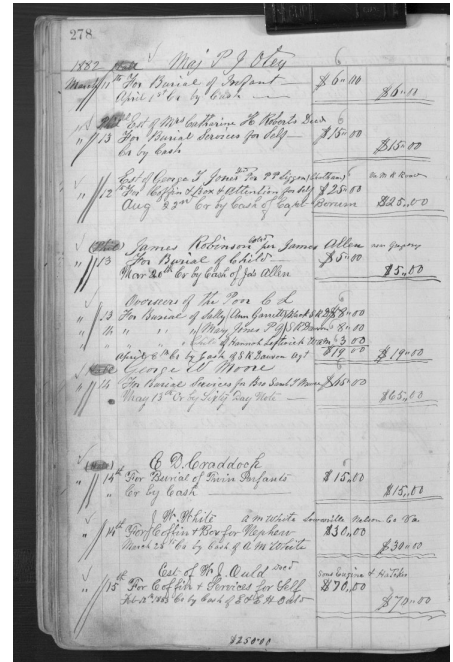 278
1882 Maj P J Otey 6
March 11th For Burial of Infant $6.00
April 1st Cr by Cash $6.00
Est of Mrs Catherine H Roberts Decd 6
" 13 For Burial Services for Self $15.00
Cr by Cash $15.00
Est of George T Jones Per P P
" 12th For Coffin & Box & Attention for Self $25.00
Aug 22nd Cr by Cash of Capt Borum $25.00
James Robinson Cold per James Allen
" 13 For Burial of Child $5.00
Mar 20th Cr by Cash of Jas Allen $5.00
Overseers of the Poor C L 6
" 13 For Burial of Sally Ann Garrett $8.00
" 14 " " " Mary Jones P G S K Dawson 8.00
" " Child of Hannah 3.00
April 6th Cr by Cash of S K Dawson Agt $19.00 $19.00
George W Moore 6
" 14 For Burial Services for Bro Saml T Moore $65.00
May 13th Cr by Sixty Day Note $65.00
E D Craddock 6
" 14th For Burial of Twin Infants $15.00
" Cr by Cash $15.00
J W White A M White Nelson Co Va
" 14th For Coffin & Box for Nephew $30.00
March 25th Cr by Cash of A M White $30.00
Est of W J Auld Decd
" 15th For Coffin & Services for Self $70.00
Cr by Cash of E & E H Auld $70.00
$250.00